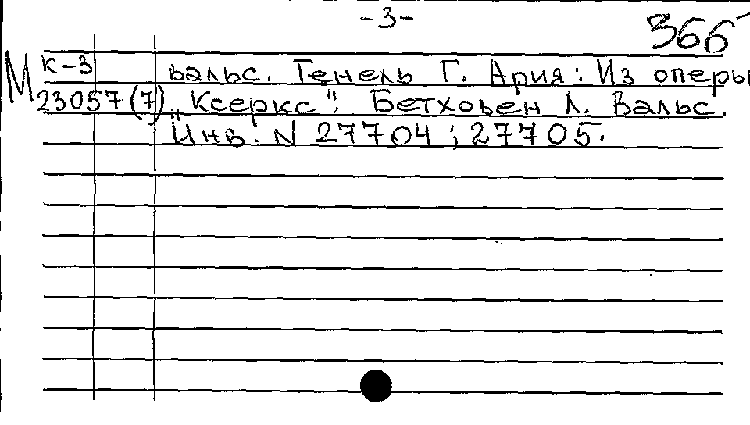 -3-
36б
М к-3 вальс. Генель Г. Ария: Из оперы
23057(7) „Ксеркс"; Бетховен Л. Вальс.
Инв. N 27704; 27705.